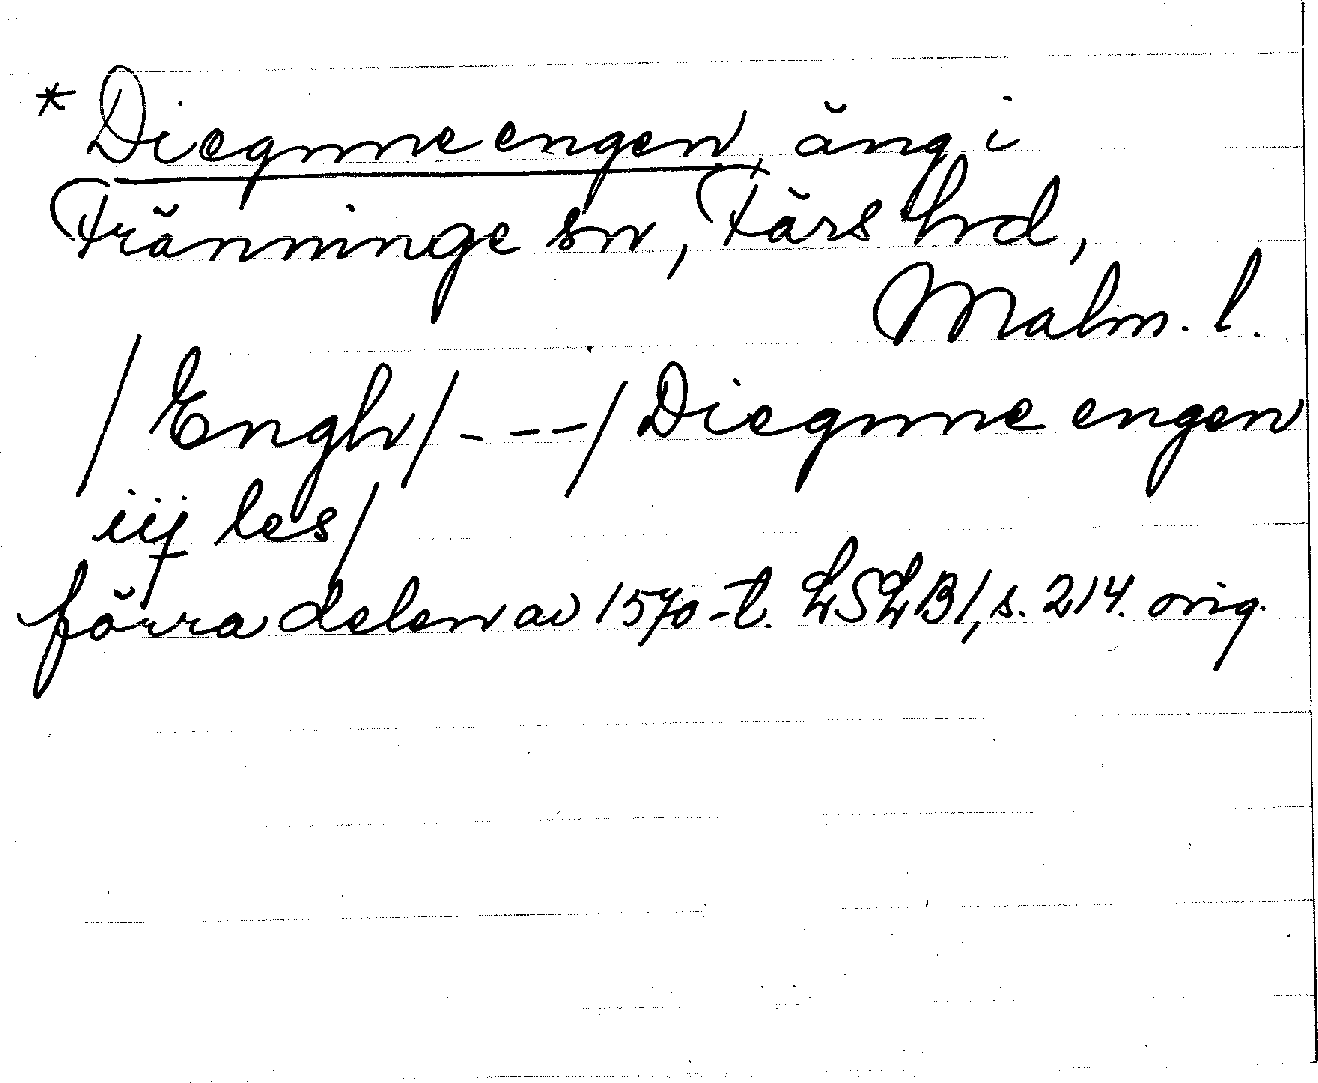 * Diegnneengen, äng i
Tränninge sn, Färs hd,
Malm. l.
/Engh/---/Diegnne engen
iij les/
förra delen av 1570-t. LSLB1, s. 214. orig.